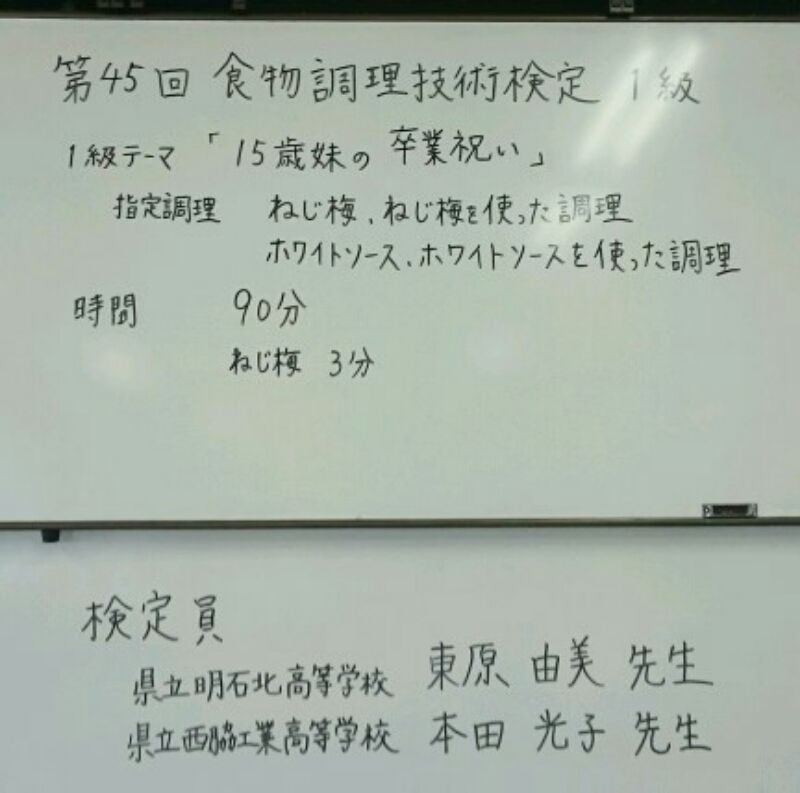 第45回 食物調理技術検定 1級
1級テーマ 「15歳妹の 卒業祝い」
指定調理 ねじ梅、ねじ梅を使った調理
ホワイトソース、ホワイトソースを使った調理
時間 90分
ねじ梅 3分
検定員
県立明石北高等学校 東原 由美 先生
県立西脇工業高等学校 本田 光子 先生